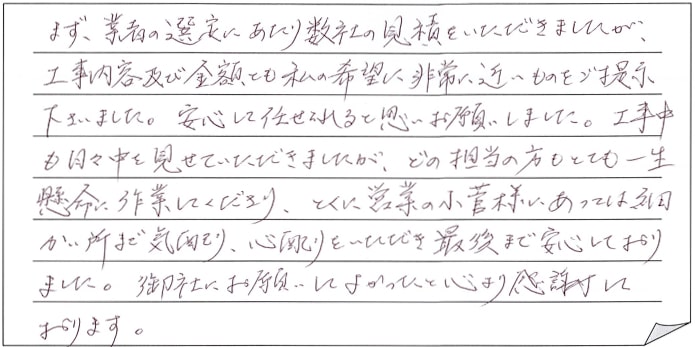 まず、業者の選定にあたり数社の見積をいただきましたが、
工事内容及び金額とも私の希望に非常に近いものをご提示
下さいました。安心して任せられると思いお願いしました。工事中
も日々中を見せていただきましたが、どの担当の方もとても一生
懸命に作業してくださり、とくに営業の小菅様にあっては細
かい所まで気配り、心配りをいただき最後まで安心しており
ました。御社にお願いしてよかったと心より感謝して
おります。